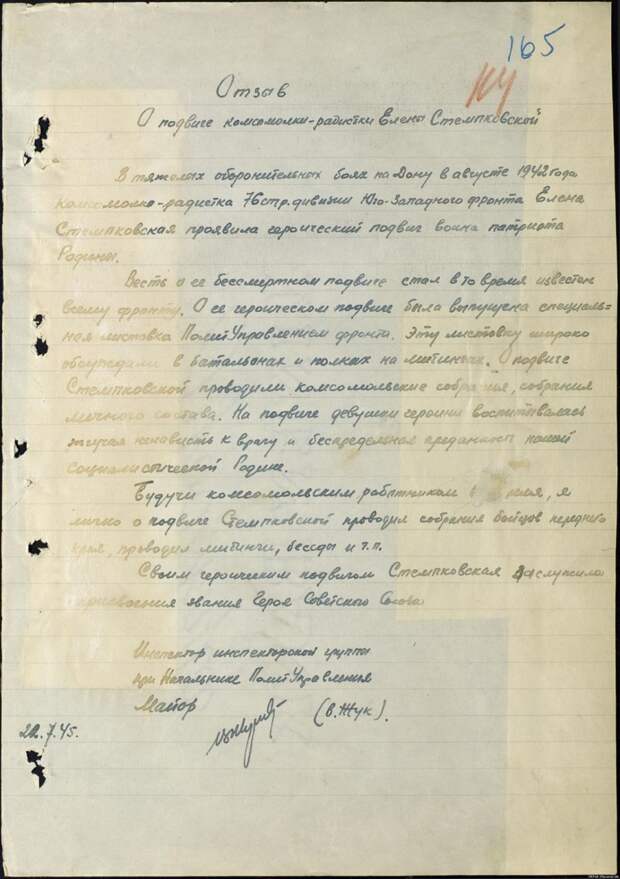 165
Отзыв
О подвиге комсомолки-радистки Елены Стемпковской
В тяжелых оборонительных боях на Дону в августе 1942 года
комсомолка-радистка 76 стр. дивизии Юго-Западного фронта Елена
Стемпковская проявила героический подвиг воина патриота
Родины.
Весть о ее бессмертном подвиге стал в то время известен
всему фронту. О ее героическом подвиге была выпущена специаль-
ная листовка ПолитУправлением фронта. Эту листовку широко
обсуждали в батальонах и полках на митингах. О подвиге
Стемпковской проводили комсомольские собрания, собрания
личного состава. На подвиге девушки героини воспитывалась
жгучая ненависть к врагу и беспредельная преданность нашей
социалистической Родине.
Будучи комсомольским работником в я
лично о подвиге Стемпковской проводил собрания бойцов переднего
края, проводил митинги, беседы и т.п.
Своим героическим подвигом Стемпковская заслужила
присвоения звания Героя Советского Союза
Инспектор инспекторской группы
при Начальнике ПолитУправления
Майор (В. Жук).
22.7.45.